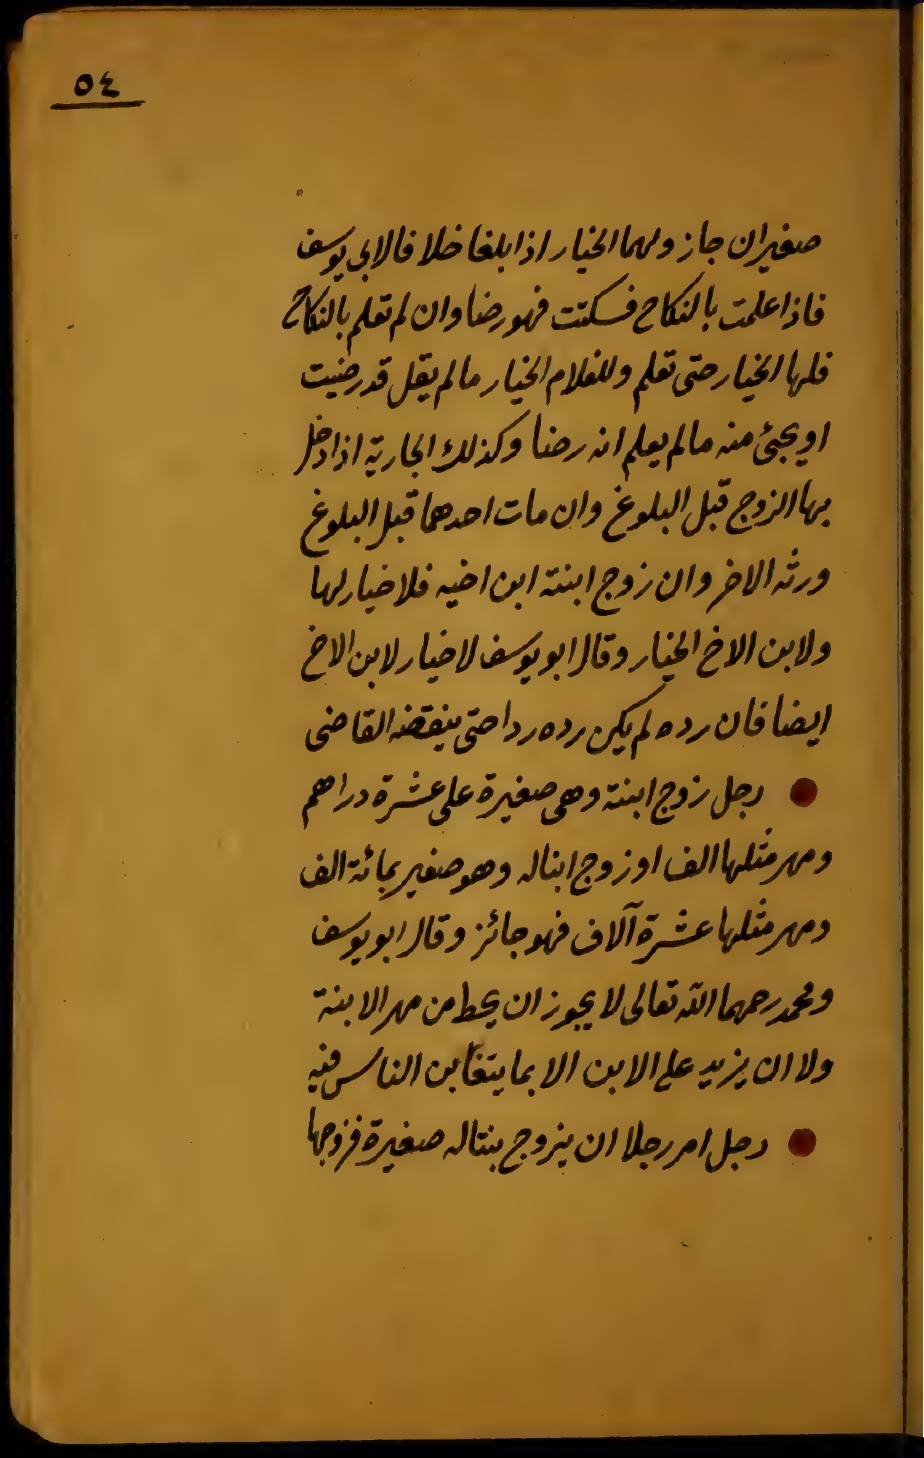 ٥٤
صغيران جاز ولهما الخيار اذا بلغا خلافا لابى يوسف
فاذا علمت بالنكاح فسكتت فهو رضا وان لم تعلم بالنكاح
فلها الخيار حتى تعلم وللغلام الخيار مالم يقل قد رضيت
او يجئ منه مالم يعلم انه رضا وكذلك الجارية اذا دخل
بها الزوج قبل البلوغ وان مات احدهما قبل البلوغ
ورثه الاخر وان زوج ابنته ابن اخيه فلا خيار لها
ولابن الاخ الخيار وقال ابو يوسف لا خيار لابن الاخ
ايضا فان رده لم يكن رده ردا حتى ينقضه القاضى
رجل زوج ابنته وهى صغيرة على عشرة دراهم
ومهر مثلها الف او زوج ابنا له وهو صغير بمائة الف
ومهر مثلها عشرة آلاف فهو جائز وقال ابو يوسف
ومحمد رحمهما الله تعالى لا يجوز ان يحط من مهر الابنة
ولا ان يزيد على الابن الا بما يتغابن الناس فيه
رجل امر رجلا ان يزوج بنتا له صغيرة فزوجها